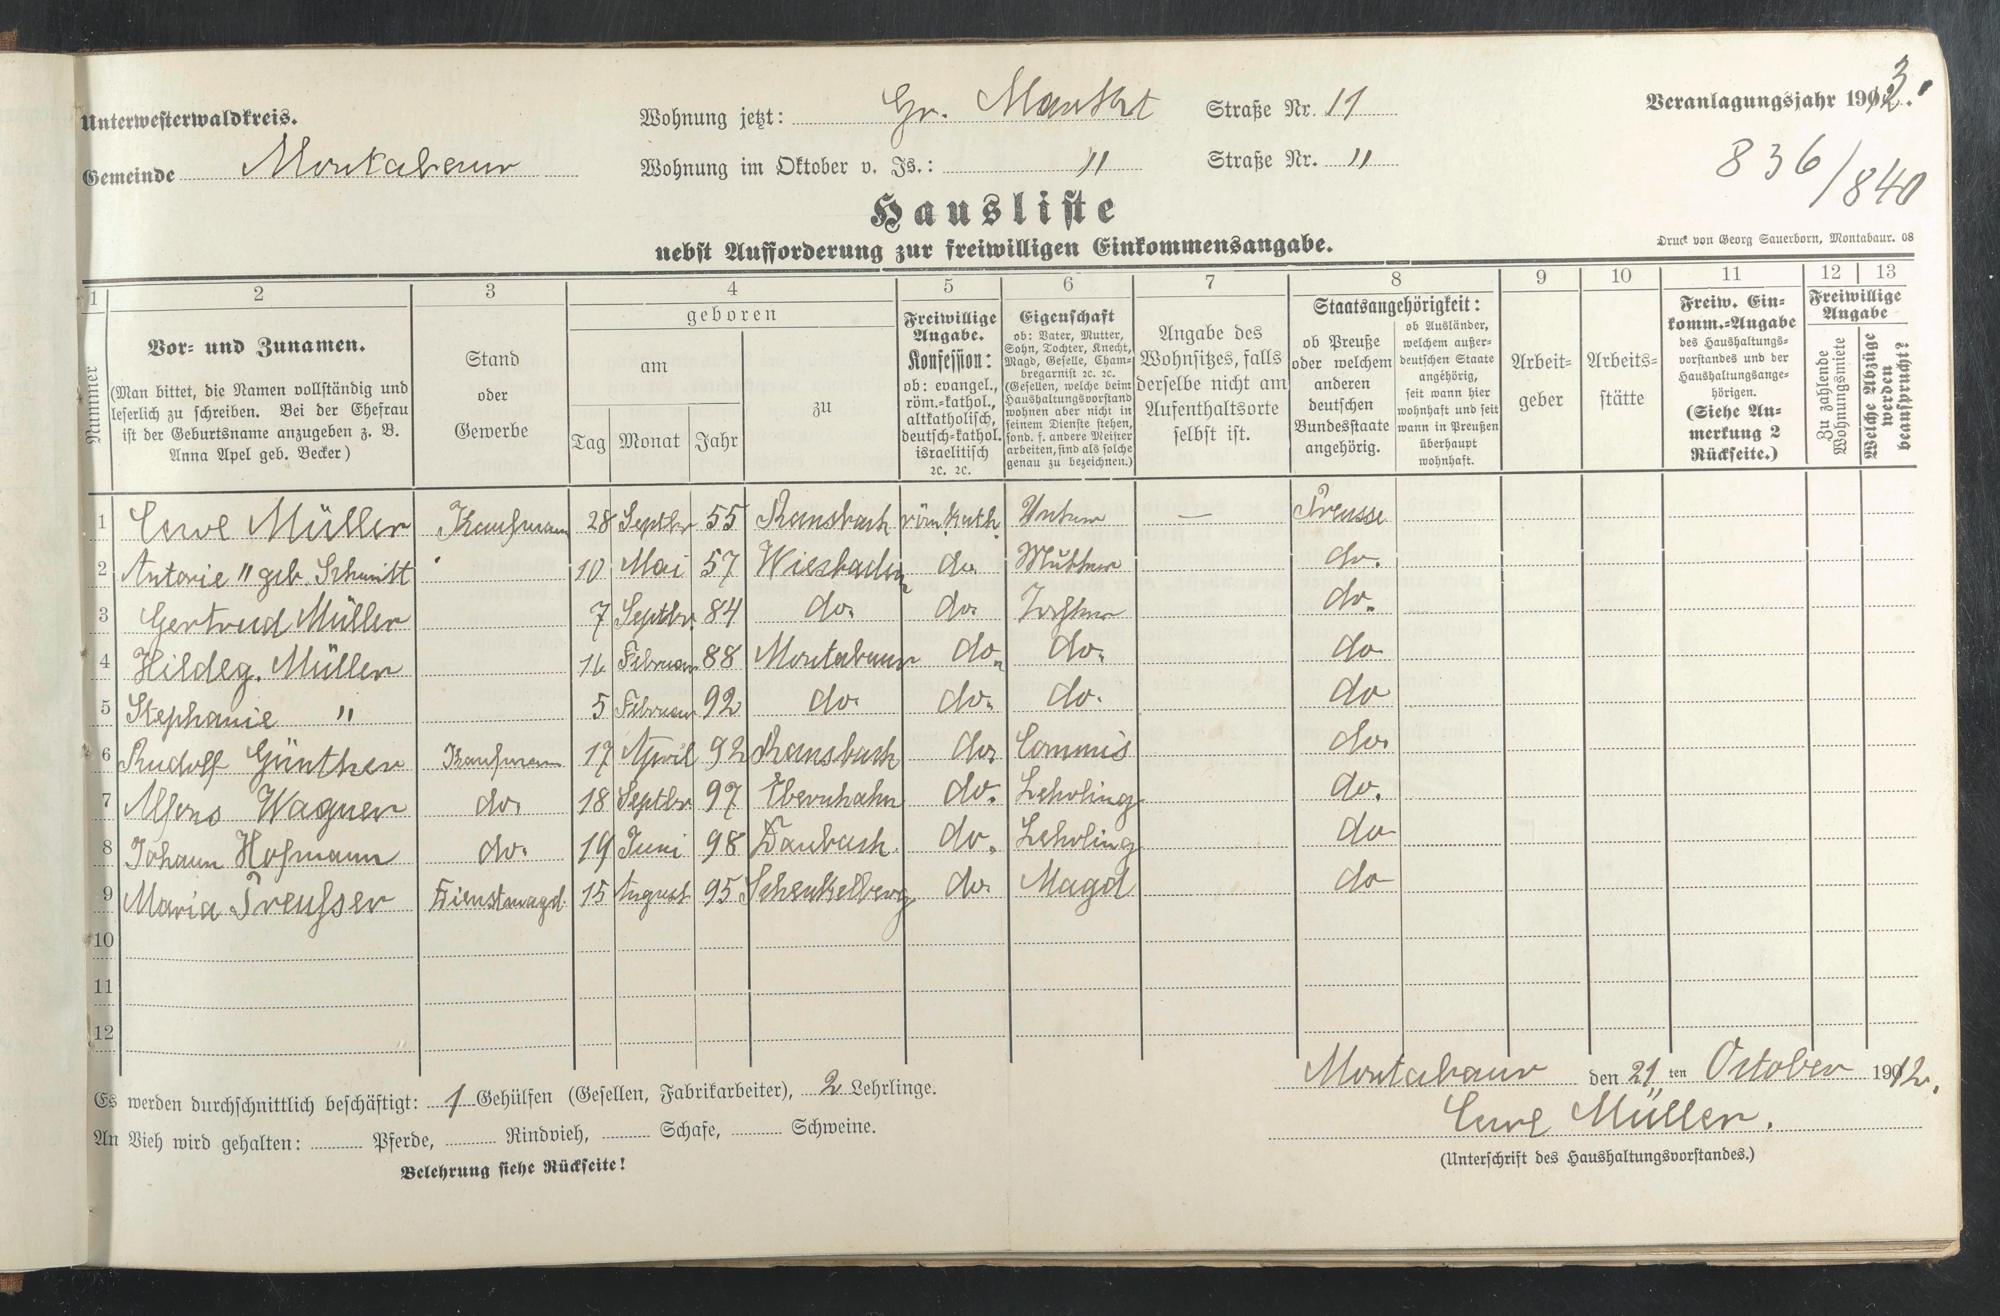 Unterwesterwaldkreis.
Gemeinde Montabaur
Wohnung jetzt: Gr. Markt Straße Nr. 11
Wohnung im Oktober v. Js.: " Straße Nr. "
Veranlagungsjahr 1913.
836/840
Hausliste
nebst Aufforderung zur freiwilligen Einkommensangabe.
Druck von Georg Sauerborn, Montabaur. 08
1 2 3 4 5 6 7 8 9 10 11 12 13
Nummer
Vor- und Zunamen.
(Man bittet, die Namen vollständig und
leserlich zu schreiben. Bei der Ehefrau
ist der Geburtsname anzugeben z. B.
Anna Apel geb. Becker)
Stand
oder
Gewerbe
geboren
am
Tag Monat Jahr
zu
Freiwillige
Angabe.
Konfession:
ob: evangel.,
röm.-kathol.,
altkatholisch,
deutsch-kathol.
israelitisch
ec. ec.
Eigenschaft
ob: Vater, Mutter,
Sohn, Tochter, Knecht,
Magd, Geselle, Cham-
bregarnist ec. ec.
(Gesellen, welche beim
Haushaltungsvorstand
wohnen aber nicht in
seinem Dienste stehen,
sond. f. andere Meister
arbeiten, sind als solche
genau zu bezeichnen.)
Angabe des
Wohnsitzes, falls
derselbe nicht am
Aufenthaltsorte
selbst ist.
Staatsangehörigkeit:
ob Preuße
oder welchem
anderen
deutschen
Bundesstaate
angehörig.
ob Ausländer,
welchem außer-
deutschen Staate
angehörig,
seit wann hier
wohnhaft und seit
wann in Preußen
überhaupt
wohnhaft.
Arbeit-
geber
Arbeits-
stätte
Freiw. Ein-
komm.-Angabe
des Haushaltungs-
vorstandes und der
Haushaltungsange-
hörigen.
(Siehe An-
merkung 2
Rückseite.)
Freiwillige
Angabe
Zu zahlende
Wohnungsmiete
Welche Abzüge
werden
beansprucht?
1 Carl Müller Kaufmann 28 Septbr 55 Ransbach röm. kath. Vater — Preusse
2 Antonie " geb. Schmitt 10 Mai 57 Wiesbaden do. Mutter do.
3 Gertrud Müller 7 Septbr. 84 do. do. Tochter do.
4 Hildeg. Müller Februar 88 Montabaur do. do. do
5 Stephanie " 5 Februar 92 do. do. do. do
6 Rudolf Günther Kaufmann 17 April 92 Ransbach do. Commis do.
7 Alfons Wagner do. 18 Septbr 97 Ebernhahn do. Lehrling do.
8 Johann Hofmann do. 19 Juni 98 Daubach. do. Lehrling do
9 Maria Preusser Dienstmagd. 15 August 95 Schenkelberg do. Magd do
10
11
12
Es werden durchschnittlich beschäftigt: 1 Gehülfen (Gesellen, Fabrikarbeiter), 2 Lehrlinge.
An Vieh wird gehalten: Pferde, Rindvieh, Schafe, Schweine.
Belehrung siehe Rückseite!
Montabaur den 21 ten October 1912.
Carl Müller.
(Unterschrift des Haushaltungsvorstandes.)